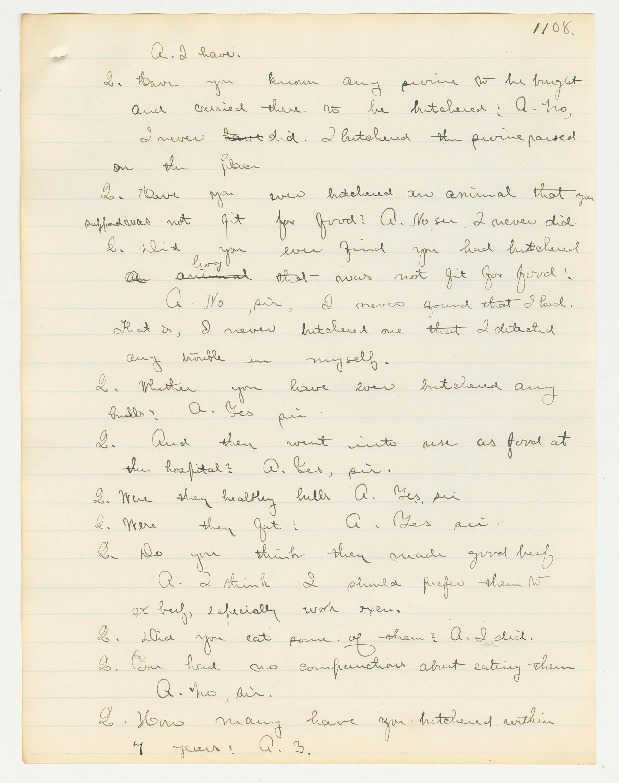 1108.
A. I have.
Q. Have you known any swine to be bought
and carried there to be butchered? A. No,
I never have did. I butchered the swine raised
on the place
Q. Have you ever butchered an animal that you
supposed was not fit for food? A. No sir I never did.
Q. Did you ever find you had butchered
hog
an animal that was not fit for food?
A. No, sir, I never found that I had.
That is, I never butchered one that I detected
any trouble in myself.
Q. Whether you have ever butchered any
bulls? A. Yes sir.
Q. And they went into use as food at
the hospital? A. Yes, sir.
Q. Were they healthy bulls A. Yes, sir
Q. Were they fat? A. Yes sir.
Q. Do you think they made good beef
A. I think I should prefer them to
ox beef, especially work oxen.
Q. Did you eat some of them? A. I did.
Q. You had no compunctions about eating them
A. No, sir.
Q. How many have you butchered within
7 years? A. 3.